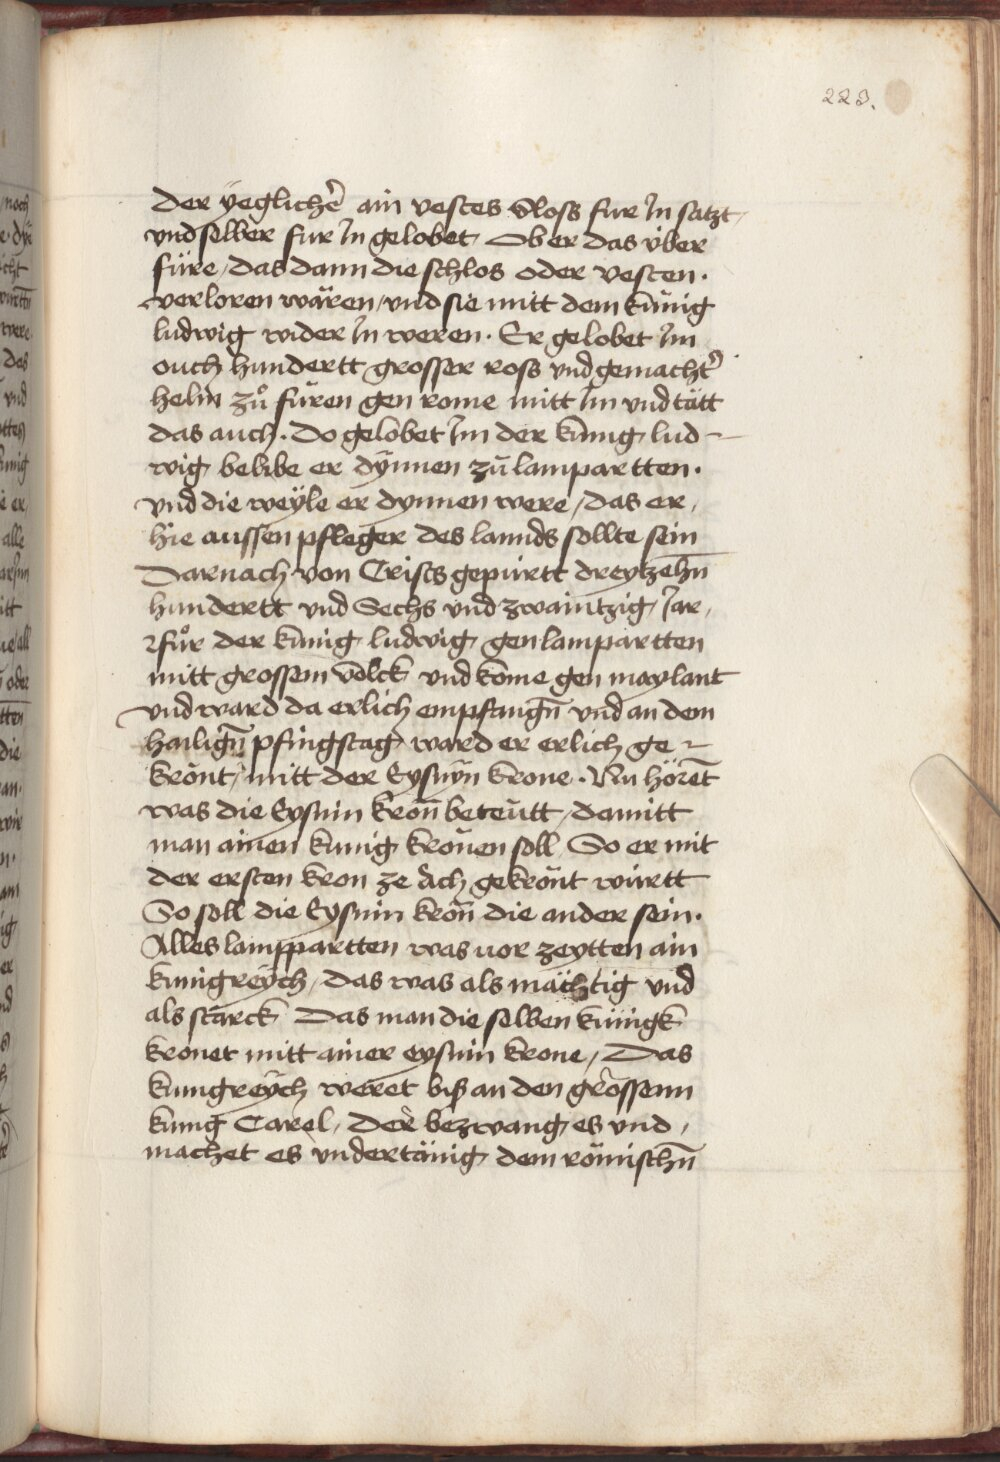 223.
der yeglicher̄ ain vestes sloss fur In satzt
vnd selber fur In gelobet Ob er das v̈ber
füre / das dann die schlos oder vesten ·
verloren wären / vnd sie mitt dem künig
ludwig wider In weren · Er gelobet Im
ouch hundertt grosser ross vnd gemachtr̄
helm zů füren gen rome mitt Im vnd tätt
das auch · Do gelobet Im der kunig lud-
wig belibe er dÿnnen zů lampartten ·
vnd die weyle er dynnen were / das er
hie aussen pfleger des lannds sollte sein
Darnach von Crists gepürtt dreytzehn̄
hundertt vnd Sechs vnd zwaintzig Jar
für der kunig ludwig gen lampartten
mitt grossem völck vnd kome gen maylant
vnd ward da erlich empfangn̄ vnd an dem
hailign̄ pfingstag ward er erlich ge-
krönt / mitt der Eysnÿn krone · Nu hörēt
was die Eysnin kron̄ beteütt / damitt
man ainen kunig krönen soll So er mit
der ersten kron ze Ach gekrönt wirtt
So soll die Eysnin kron̄ die ander sein ·
Alles lamppartten was vor zeytten ain
kunigreÿch / das was als mächtig vnd
als starck Das man die selben künigk
kronet mitt ainer eysnin krone / Das
kungreÿch weret biß an den grossenn
kunig Carel / Der bezwang es vnd
machet es vndertänig dem römischn̄